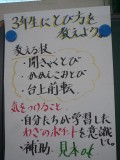 3年生にとび方を
教えよう。
教える技
・開きゃくとび
・かかえこみとび
・台上前転
気をつけること
・自分たちが学習した
わざのポイントを意識に。
・補助 見本